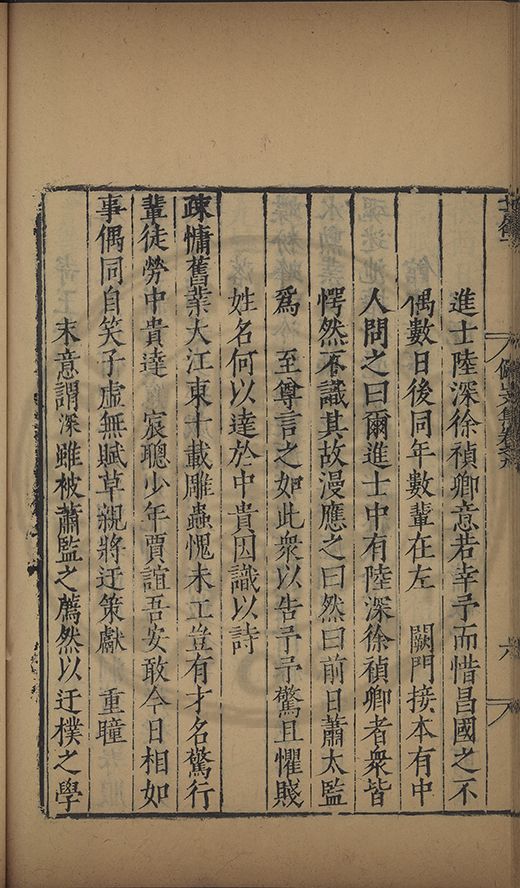 進士陸深徐禎卿意若幸予而惜昌國之不
偶數日後同年數輩在左 闕門接本有中
人問之曰爾進士中有陸深徐禎卿者衆皆
愕然不識其故漫應之曰然曰前日蕭太監
爲 至尊言之如此衆以告予予驚且懼賤
姓名何以達於中貴因識以詩
疎慵舊業大江東十載雕蟲愧未工豈有才名驚行
輩徒勞中貴達 宸聰少年賈誼吾安敢今日相如
事偶同自笑子虛無賦草親將迂策獻 重瞳
末意謂深雖被蕭監之薦然以迂樸之學
六